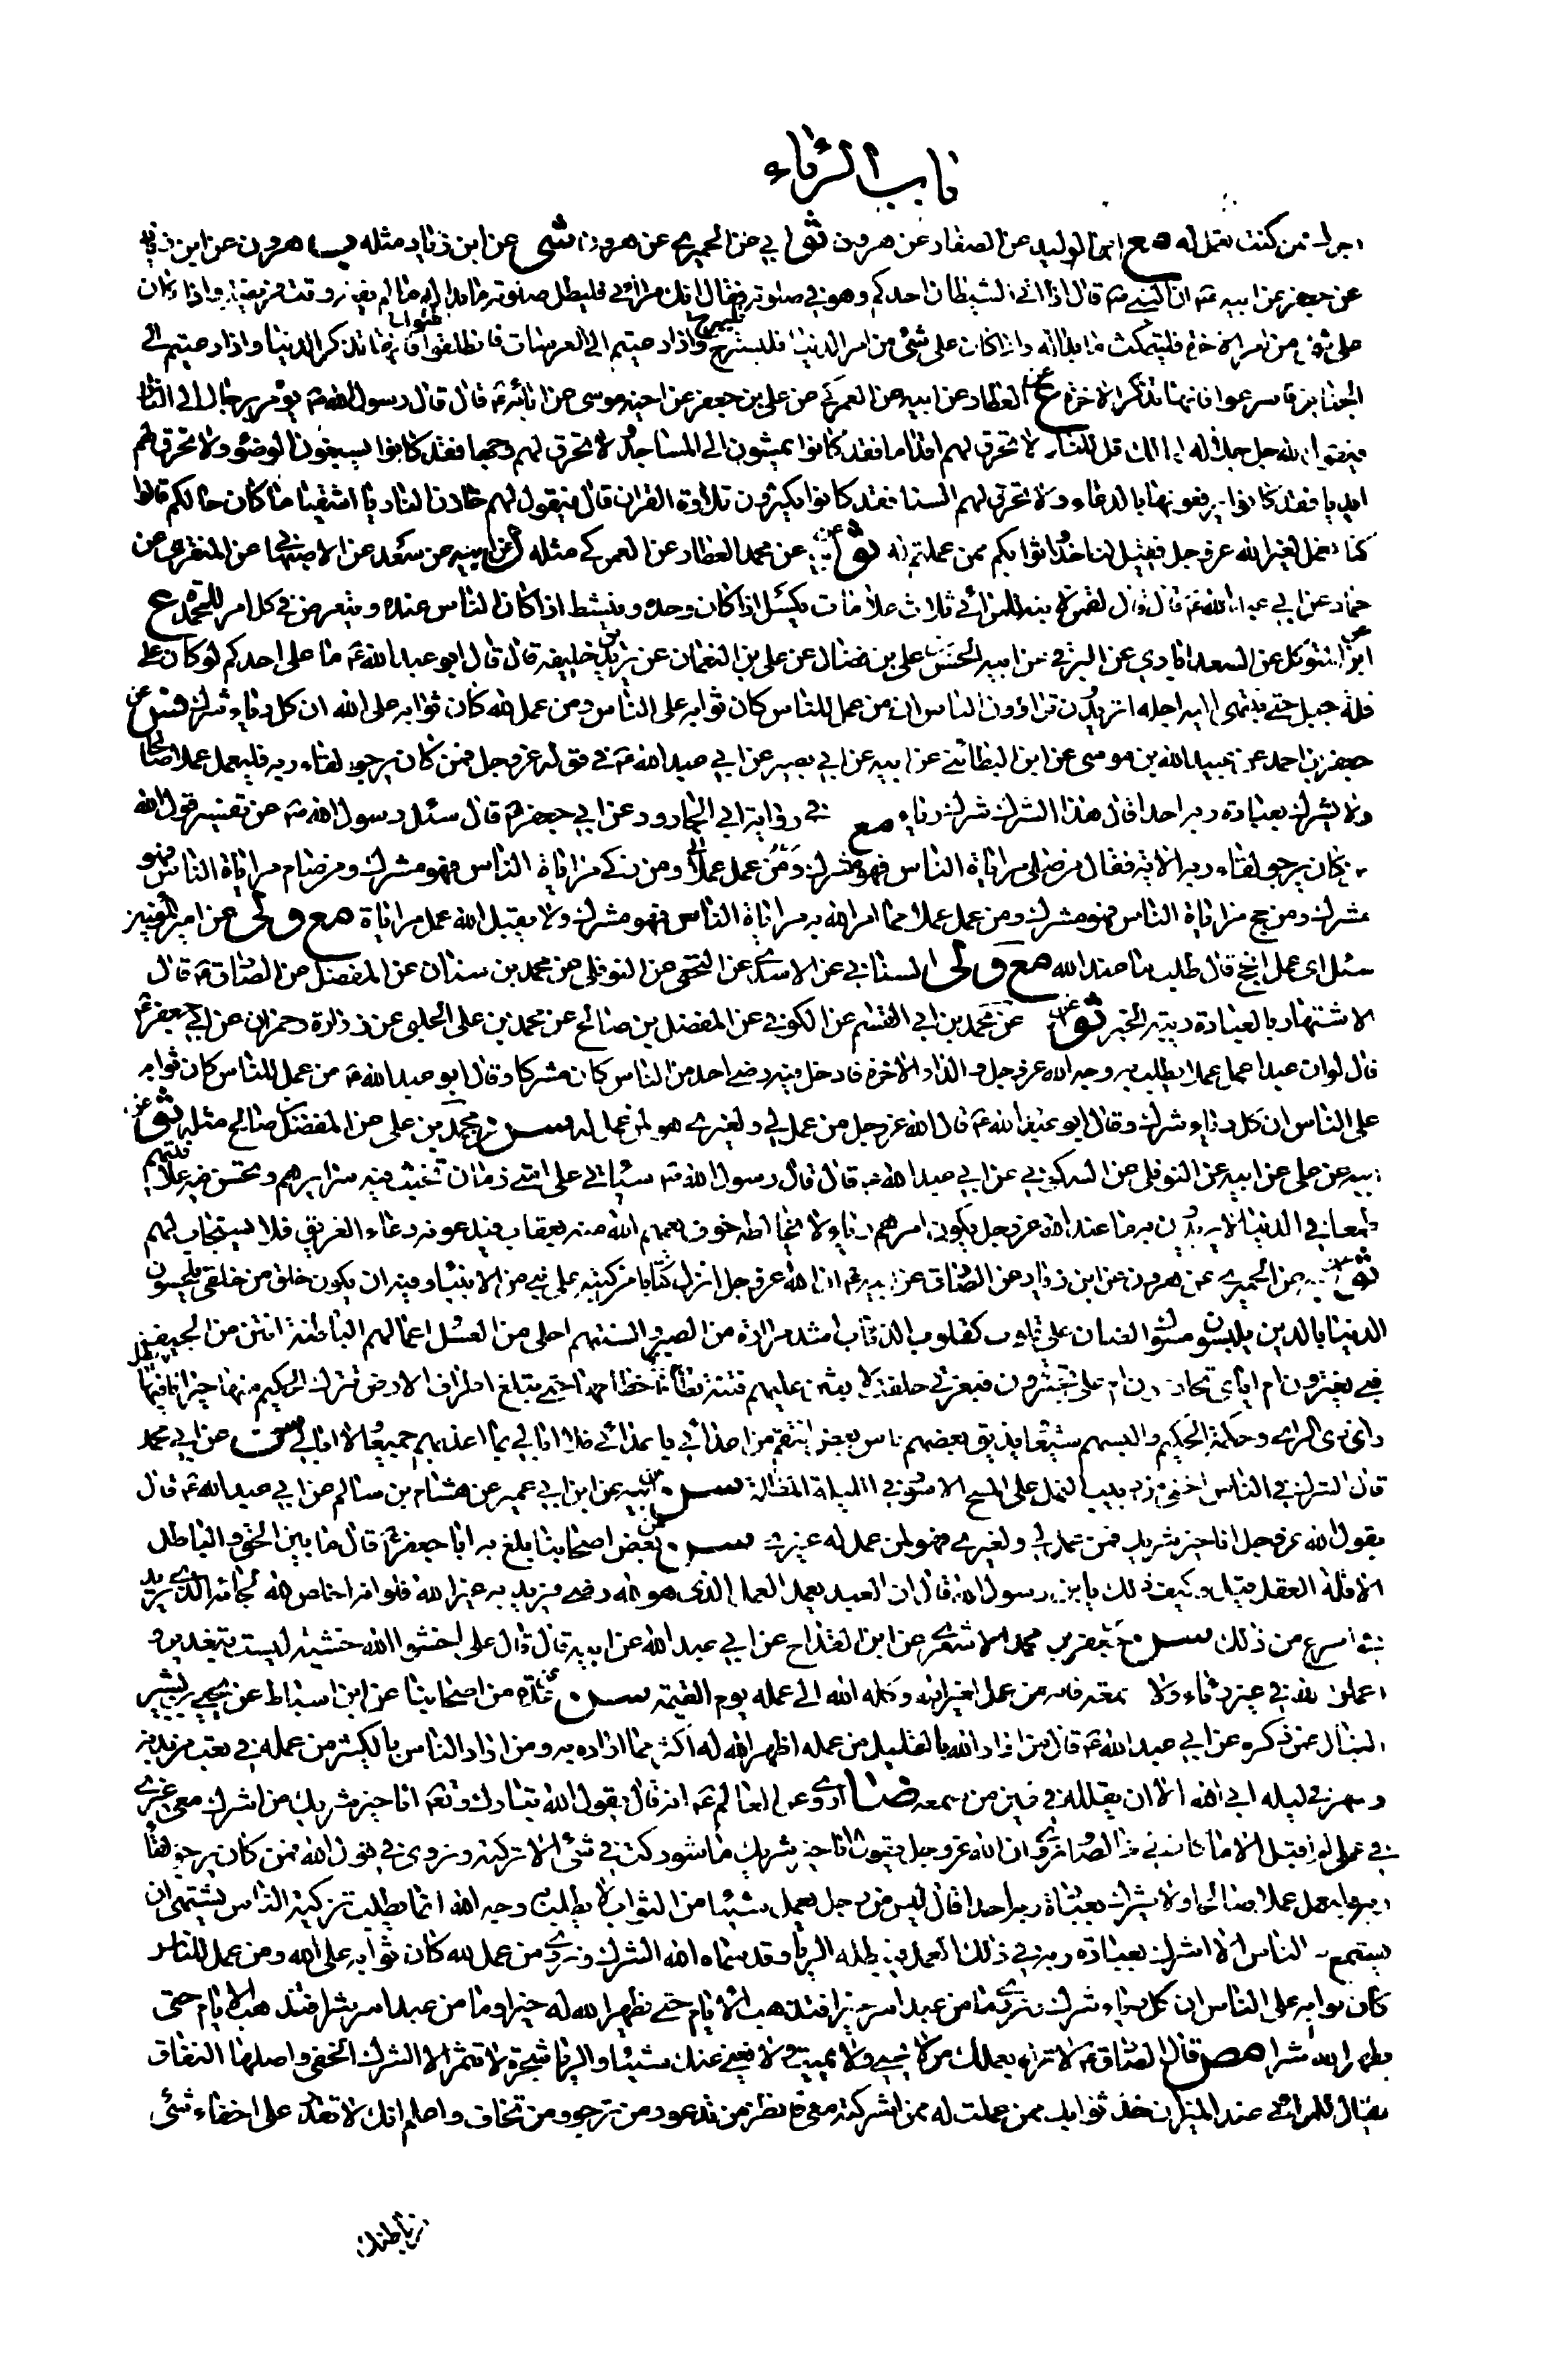 باب الرياء
اجرك ممن كنت تعمل له مع ابن الوليد عن الصفار عن هرون ثو ابي عن الحميري عن هرون شى عن ابن زياد مثله ب هرون عن ابن زياد
عن جعفر عن ابيه ع ان النبي ص قال اذا اتى الشيطان احدكم وهو في صلوته فقال انك مرائي فليطل صلوته ما بدا له ما لم يفته وقت فريضة واذا كان
على شئ من امر الاخرة فليتمكث ما بدا له واذا كان على شئ من امر الدنيا فليسترح واذا دعيتم الى العرسات فابطئوا فانها تذكر الدنيا واذا دعيتم الى
الجنائز فاسرعوا فانها تذكر الاخرة ع العطار عن ابيه عن العمركي عن علي بن جعفر عن اخيه موسى عن ابائه ع قال قال رسول الله ص يؤمر برجال الى النار
فيقول الله جل جلاله لمالك قل للنار لا تحرقي لهم اقداما فقد كانوا يمشون الى المساجد ولا تحرقي لهم وجها فقد كانوا يسبغون الوضوء ولا تحرقي لهم
ايديا فقد كانوا يرفعونها بالدعاء ولا تحرقي لهم السنا فقد كانوا يكثرون تلاوة القران قال فيقول لهم خازن النار يا اشقياء ما كان حالكم قالوا
كنا نعمل لغير الله عز وجل فقيل لنا خذوا ثوابكم ممن عملتم له ثو عن محمد العطار عن العمركي مثله ل ابيه عن سعد عن الاصبهاني عن المنقري عن
حماد عن ابي عبد الله ع قال قال لقمن لابنه للمرائي ثلاث علامات يكسل اذا كان وحده وينشط اذا كان الناس عنده ويتعرض في كل امر للمحمدة ع
ابن المتوكل عن السعدابادي عن البرقي عن ابيه الحسن علي بن فضال عن علي بن النعمان عن يزيد بن خليفة قال قال ابو عبد الله ع ما على احدكم لو كان على
قلة جبل حتى ينتهي اليه اجله اتريدون تراؤون الناس ان من عمل للناس كان ثوابه على الناس ومن عمل لله كان ثوابه على الله ان كل رياء شرك فس عن
جعفر بن احمد عن عبيد الله بن موسى عن ابن البطائني عن ابيه عن ابي بصير عن ابي عبد الله ع في قوله عز وجل فمن كان يرجو لقاء ربه فليعمل عملا صالحا
ولا يشرك بعبادة ربه احدا قال هذا الشرك شرك رياء مع في رواية ابي الجارود عن ابي جعفر ع قال سئل رسول الله ص عن تفسير قول الله
من كان يرجو لقاء ربه الاية فقال من صلى مراياة الناس فهو مشرك ومن زكى مراياة الناس فهو مشرك ومن صام مراياة الناس فهو
مشرك ومن حج مراياة الناس فهو مشرك ومن عمل عملا مما امر الله به مراياة الناس فهو مشرك ولا يقبل الله عمل مراياة مع و لى عن امير المؤمنين
سئل اي عمل انجح قال طلب ما عند الله مع و لى السناني عن الاسدي عن النخعي عن النوفلي عن محمد بن سنان عن المفضل عن الصادق ع قال
الاشتهار بالعبادة ريبة الخبر ثو عن محمد بن ابي القسم عن الكوفي عن المفضل بن صالح عن محمد بن علي الحلبي عن زرارة وحمران عن ابي جعفر ع
قال لو ان عبدا عمل عملا يطلب به وجه الله عز وجل والدار الاخرة فادخل فيه رضى احد من الناس كان مشركا وقال ابو عبد الله ع من عمل للناس كان ثوابه
على الناس ان كل رياء شرك وقال ابو عبد الله ع قال الله عز وجل من عمل لي ولغيري هو لمن عمل له سن محمد بن علي عن المفضل بن صالح مثله ثو عن
ابيه عن علي عن ابيه عن النوفلي عن السكوني عن ابي عبد الله ع قال قال رسول الله ص سياتي على امتي زمان تخبث فيه سرايرهم وتحسن فيه علانيتهم
طمعا في الدنيا لا يريدون به ما عند الله عز وجل يكون امرهم رياء لا يخالطه خوف يعمهم الله منه بعقاب فيدعونه دعاء الغريق فلا يستجاب لهم
ثو عن الحميري عن هرون عن ابن زياد عن الصادق عن ابيه ع ان الله عز وجل انزل كتابا من كتبه على نبي من الانبياء وفيه ان يكون خلق من خلقي يلحسون
الدنيا بالدين يلبسون مسوك الضان على قلوب كقلوب الذئاب اشد مرارة من الصبر والسنتهم احلى من العسل اعمالهم الباطنة انتن من الجيف
فبي يغترون ام اياي يخادعون ام علي يتجبرون فبعزتي حلفت لا بعثن عليهم فتنة تطأ في خطامها حتى تبلغ اطراف الارض تترك الحكيم منها حيرانا فيها
راي ذي الراي وحكمة الحكيم والبسهم شيعا يذيق بعضهم باس بعض انتقم من اعدائي باعدائي فلا ابالي بما اعذبهم جميعا ولا ابالي عن ابي محمد
قال الشرك في الناس اخفى من دبيب النمل على المسح الاسود في الليلة المظلمة سن ابيه عن ابن ابي عمير عن هشام بن سالم عن ابي عبد الله ع قال
يقول الله عز وجل انا خير شريك فمن عمل لي ولغيري فهو لمن عمل له غيري سن بعض اصحابنا بلغ به ابا جعفر ع قال ما بين الحق والباطل
الا قلة العقل قيل وكيف ذلك يا بن رسول الله قال ان العبد يعمل العمل الذي هو لله رضى فيريد به غير الله فلو انه اخلص لله لجائه الذي يريد
في اسرع من ذلك سن جعفر بن محمد الاشعري عن ابن القداح عن ابي عبد الله عن ابيه قال قال علي اخشوا الله خشية ليست بتعذير و
اعملوا لله في غير رياء ولا سمعة فانه من عمل لغير الله وكله الله الى عمله يوم القيمة سن عدة من اصحابنا عن ابن اسباط عن يحيى بن بشير
النبال عمن ذكره عن ابي عبد الله ع قال من اراد الله بالقليل من عمله اظهر الله له اكثر مما اراده به ومن اراد الناس بالكثير من عمله في تعب من بدنه
وسهر في ليله ابى الله الا ان يقلله في عين من سمعه ضا اروي عن العالم ع انه قال يقول الله تبارك وتع انا خير شريك من اشرك معي غيري
في عملي لم اقبل الا ما كان لي خالصا نروي ان الله عز وجل يقول انا خير شريك ما شوركت في شئ الا تركته ونروي في قول الله فمن كان يرجو لقاء
ربه فليعمل عملا صالحا ولا يشرك بعبادة ربه احدا قال ليس من رجل يعمل شيئا من الثواب لا يطلب به وجه الله انما يطلب تزكية الناس يشتهي ان
يستمع به الناس الا اشرك بعبادة ربه في ذلك العمل فيبطله الريا وقد سماه الله الشرك ونروي من عمل لله كان ثوابه على الله ومن عمل للناس
كان ثوابه على الناس ان كل رياء شرك نروي ما من عبد اسر خيرا فتذهب الايام حتى يظهر الله له خيرا وما من عبد اسر شرا فتذهب الايام حتى
يظهر الله شرا مص قال الصادق ع لا تراء بعملك من لا يحيي ولا يميت ولا يغني عنك شيئا والريا شجرة لا تثمر الا الشرك الخفي واصلها النفاق
يقال للمرائي عند الميزان خذ ثوابك ممن عملت له ممن اشركته معي فانظر من تدعو ومن ترجو ومن تخاف واعلم انك لا تقدر على اخفاء شئ
من باطنك